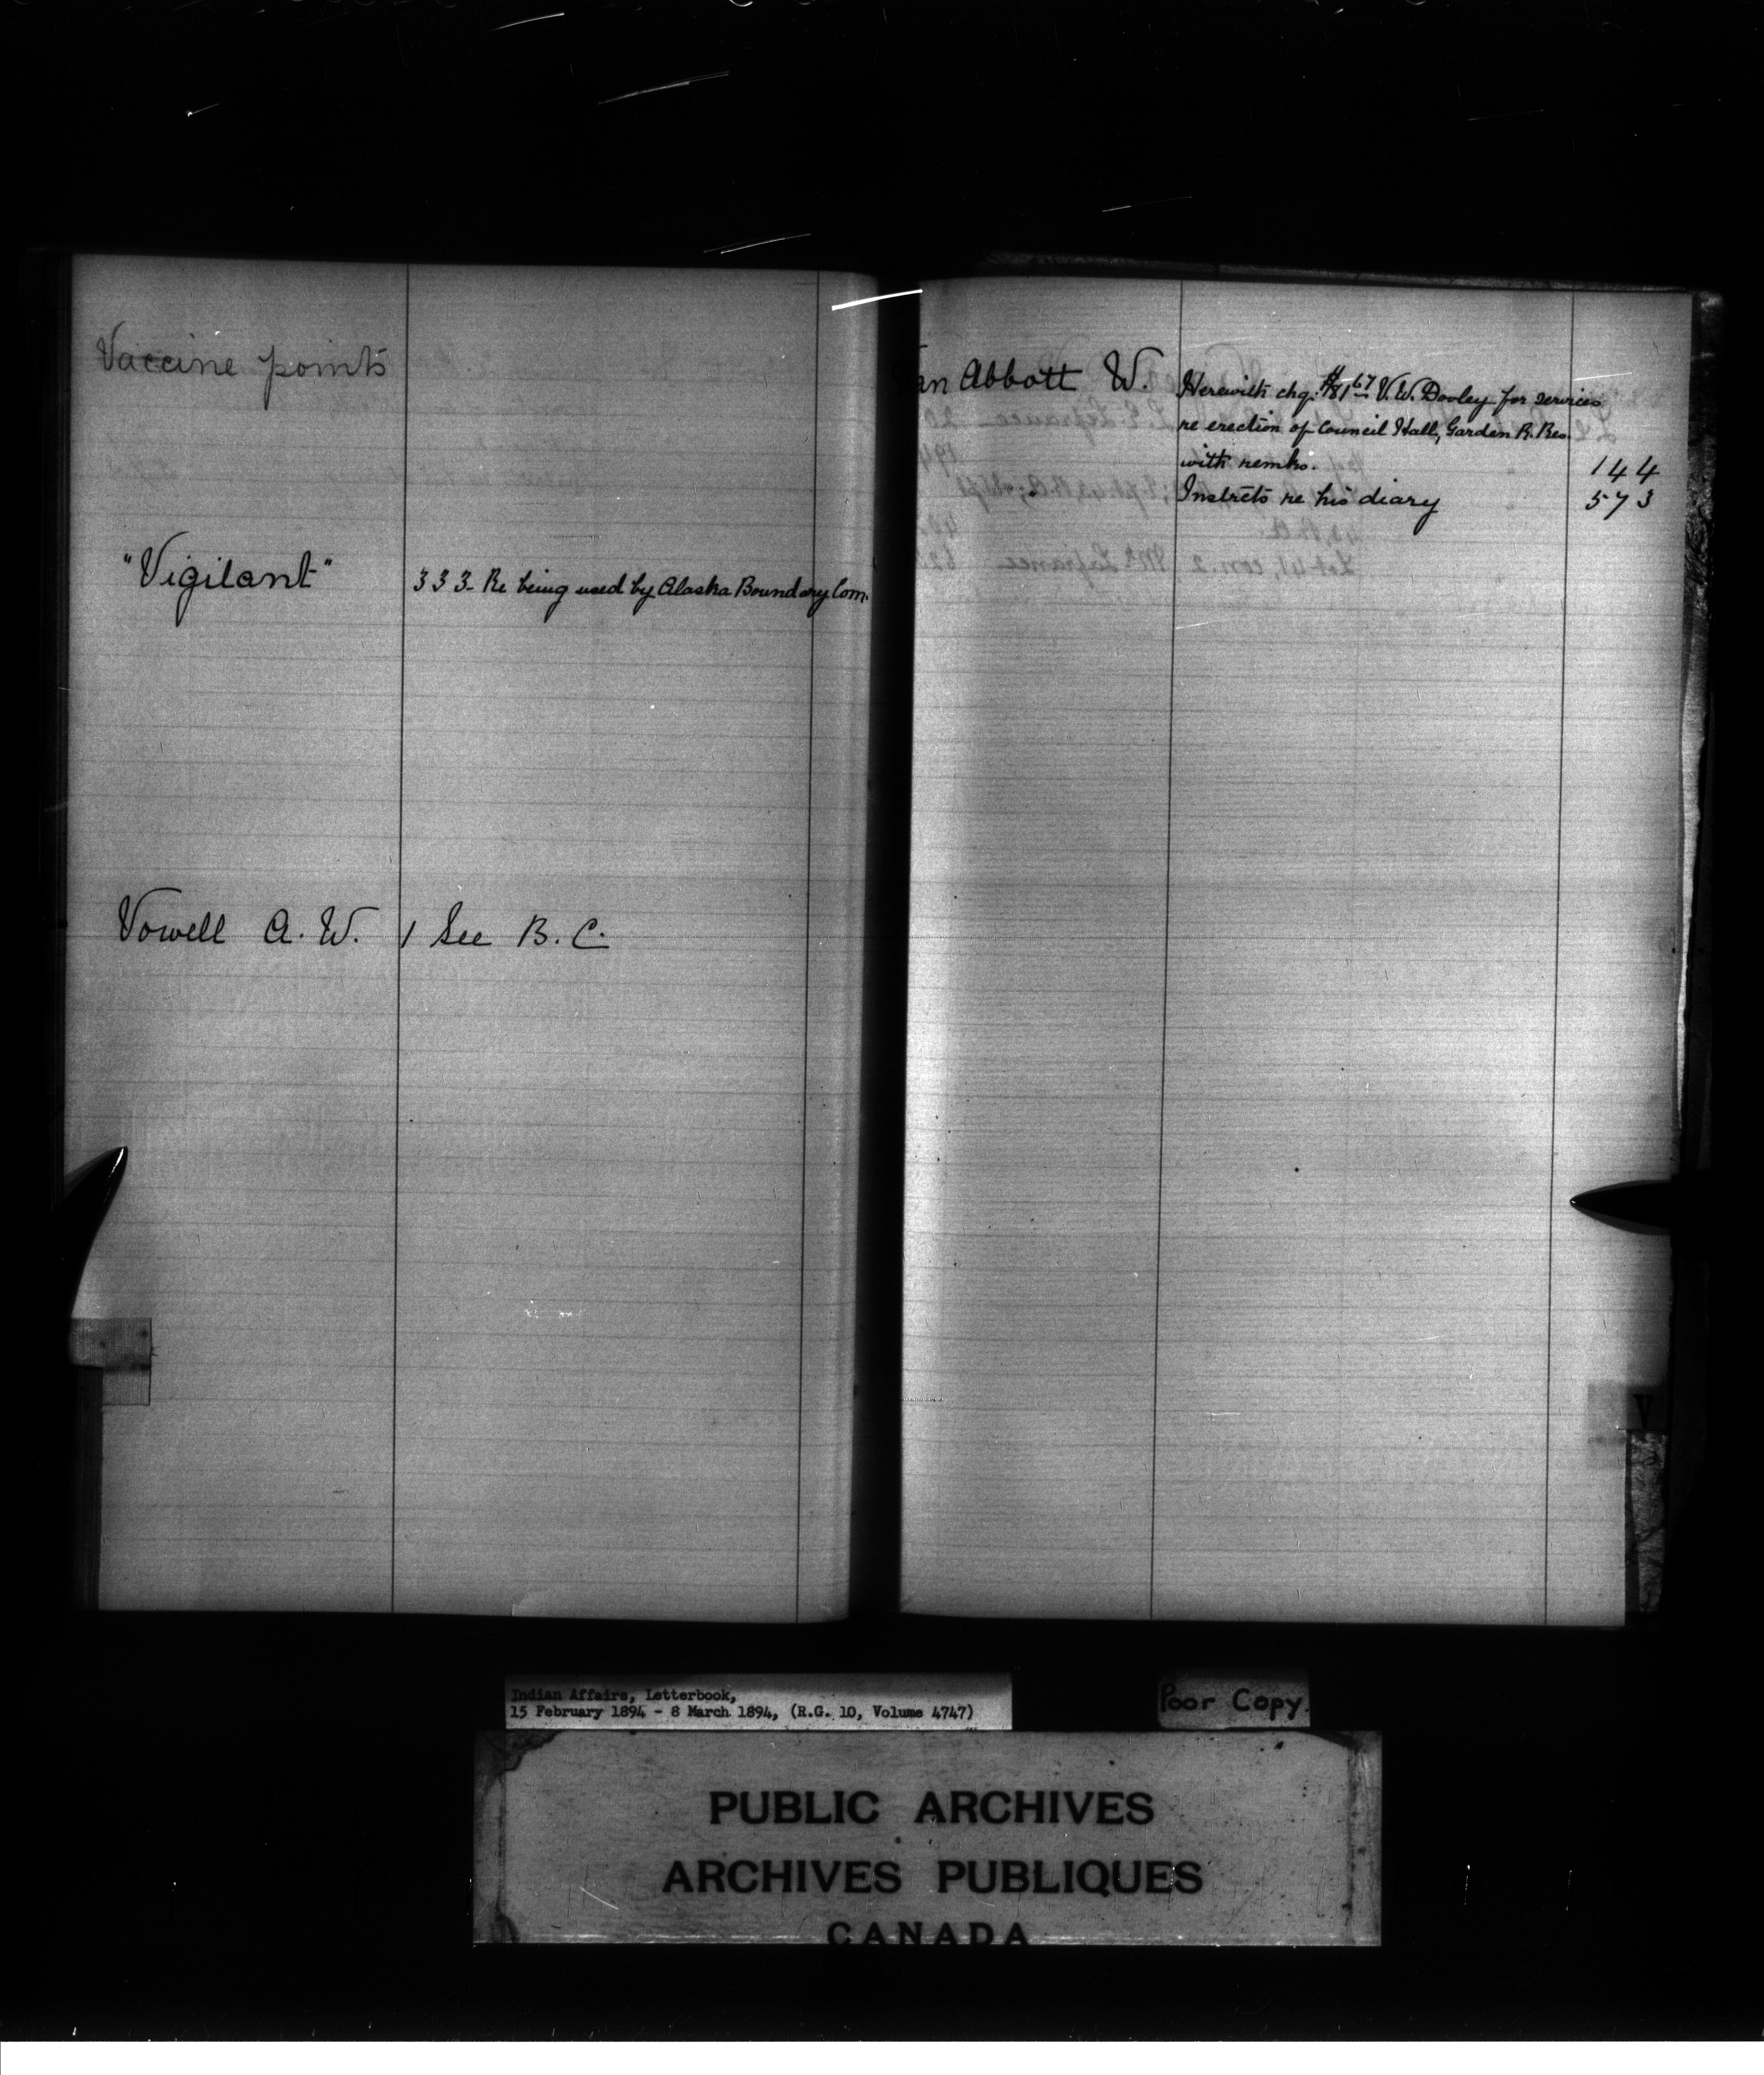 Vaccine points
"Vigilant" 333- Re being used by Alaska Boundary Com.
Vowell A. W. 1 See B. C.
an Abbott W. Herewith chq. $81 67 V. W. Dooley for services
re erection of Council Hall, Garden R. Res.
with remks. 144
Instrcts re his diary 573
V
Indian Affairs, Letterbook,
15 February 1894 - 8 March 1894, (R.G. 10, Volume 4747)
Poor Copy.
PUBLIC ARCHIVES
ARCHIVES PUBLIQUES
CANADA